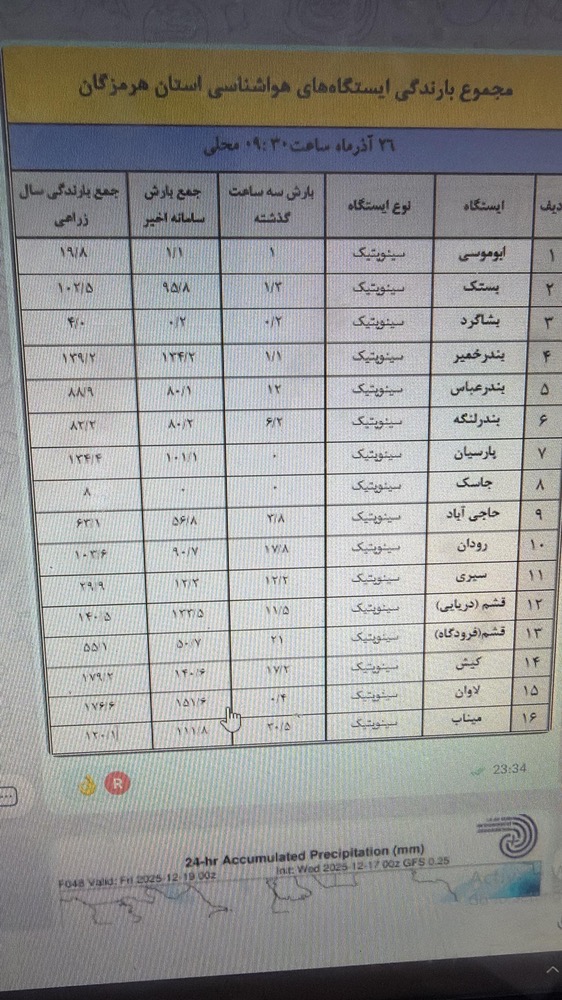 مجموع بارندگی ایستگاه‌های هواشناسی استان هرمزگان
۲۶ آذرماه ساعت ۰۹:۳۰ محلی
دیف ایستگاه نوع ایستگاه بارش سه ساعت گذشته جمع بارش سامانه اخیر جمع بارندگی سال زراعی
۱ ابوموسی سینوپتیک ۱ ۱/۱ ۱۹/۸
۲ بستک سینوپتیک ۱/۳ ۹۵/۸ ۱۰۲/۵
۳ بشاگرد سینوپتیک ۰/۲ ۰/۲ ۴/۰
۴ بندرخمیر سینوپتیک ۱/۱ ۱۳۴/۲ ۱۳۹/۲
۵ بندرعباس سینوپتیک ۱۲ ۸۰/۱ ۸۸/۹
۶ بندرلنگه سینوپتیک ۶/۲ ۸۰/۲ ۸۲/۲
۷ پارسیان سینوپتیک ۰ ۱۰۱/۱ ۱۳۴/۴
۸ جاسک سینوپتیک ۰ ۰ ۸
۹ حاجی آباد سینوپتیک ۳/۸ ۵۶/۸ ۶۳/۱
۱۰ رودان سینوپتیک ۱۷/۸ ۹۰/۷ ۱۰۳/۶
۱۱ سیری سینوپتیک ۱۲/۲ ۱۲/۳ ۲۹/۹
۱۲ قشم (دریایی) سینوپتیک ۱۱/۵ ۱۳۳/۵ ۱۴۰/۵
۱۳ قشم(فرودگاه) سینوپتیک ۲۱ ۵۰/۷ ۵۵/۱
۱۴ کیش سینوپتیک ۱۷/۲ ۱۴۰/۶ ۱۷۹/۲
۱۵ لاوان سینوپتیک ۰/۴ ۱۵۱/۶ ۱۷۶/۶
۱۶ میناب سینوپتیک ۳۰/۵ ۱۱۱/۸ ۱۲۰/۱
R
23:34
24-hr Accumulated Precipitation (mm)
F048 Valid: Fri 2025-12-19 00z Init: Wed 2025-12-17 00z GFS 0.25